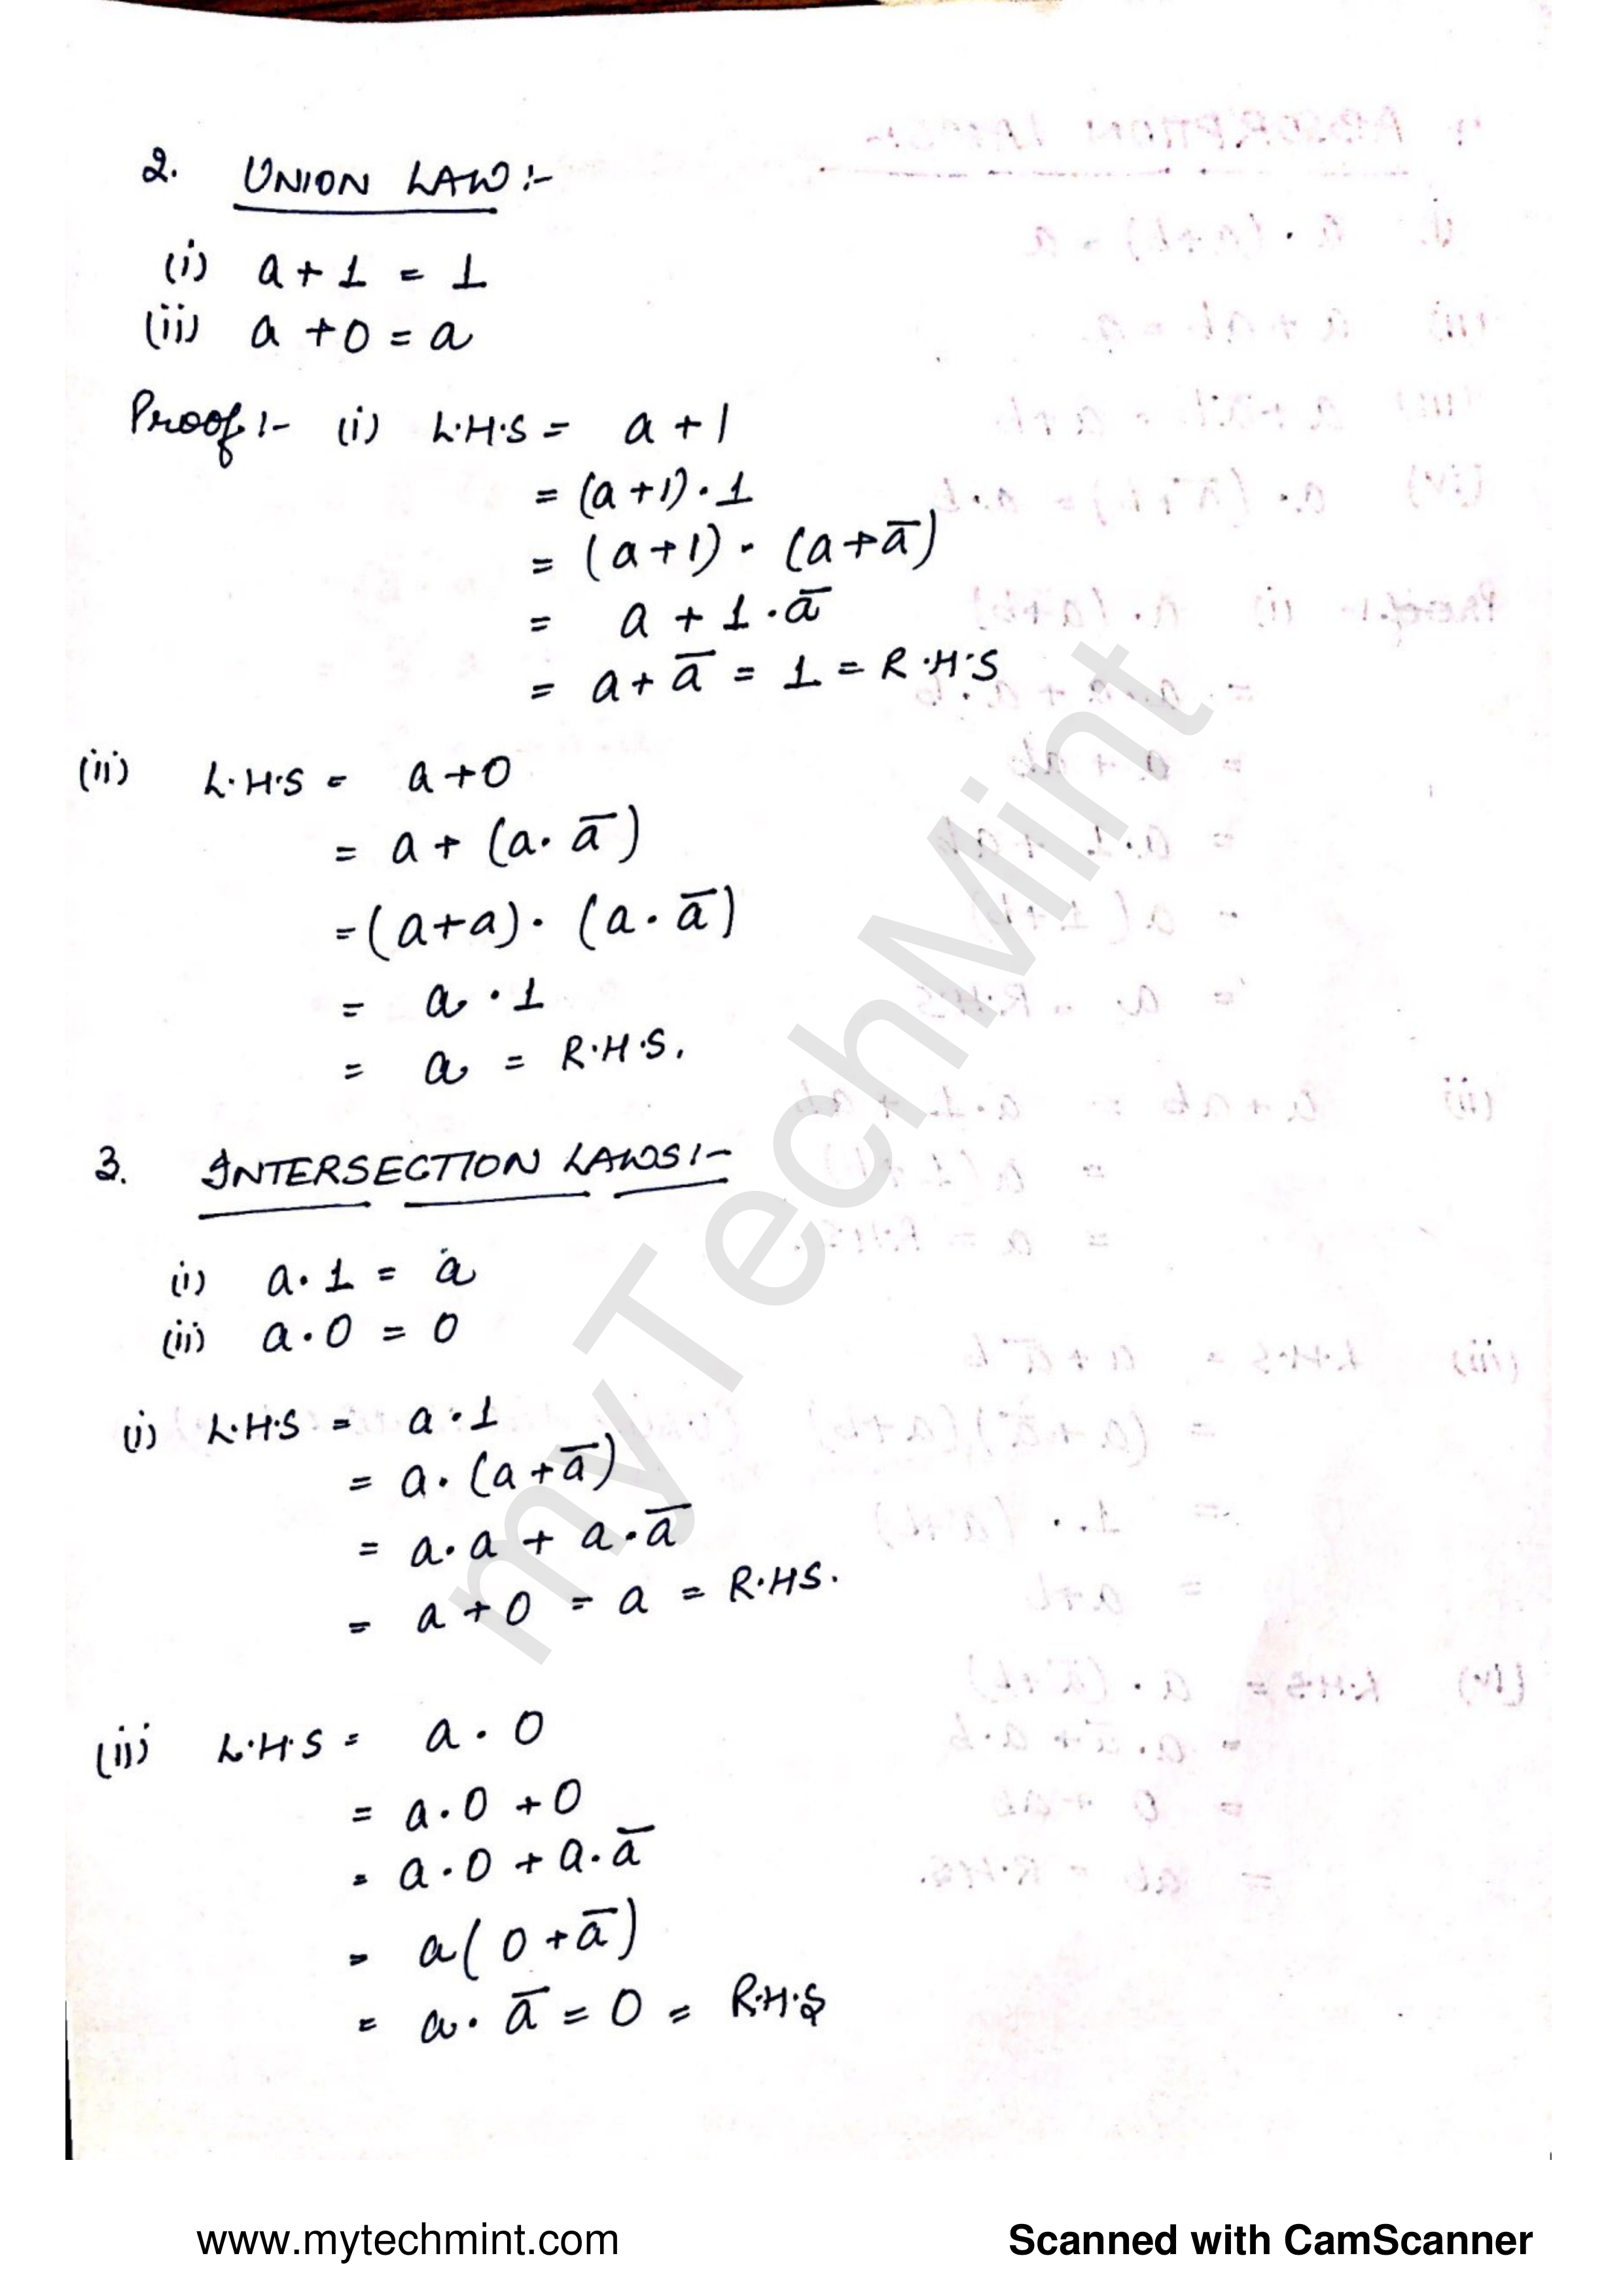 2. UNION LAW :-
(i) a + 1 = 1
(ii) a + 0 = a
Proof :- (i) L.H.S = a + 1
= (a + 1) · 1
= (a + 1) · (a + a̅)
= a + 1 · a̅
= a + a̅ = 1 = R.H.S
(ii) L.H.S = a + 0
= a + (a · a̅)
= (a + a) · (a · a̅)
= a · 1
= a = R.H.S.
3. INTERSECTION LAWS :-
(i) a · 1 = a
(ii) a · 0 = 0
(i) L.H.S = a · 1
= a · (a + a̅)
= a · a + a · a̅
= a + 0 = a = R.H.S.
(ii) L.H.S = a · 0
= a · 0 + 0
= a · 0 + a · a̅
= a ( 0 + a̅ )
= a · a̅ = 0 = R.H.S
myTechMint
www.mytechmint.com
Scanned with CamScanner